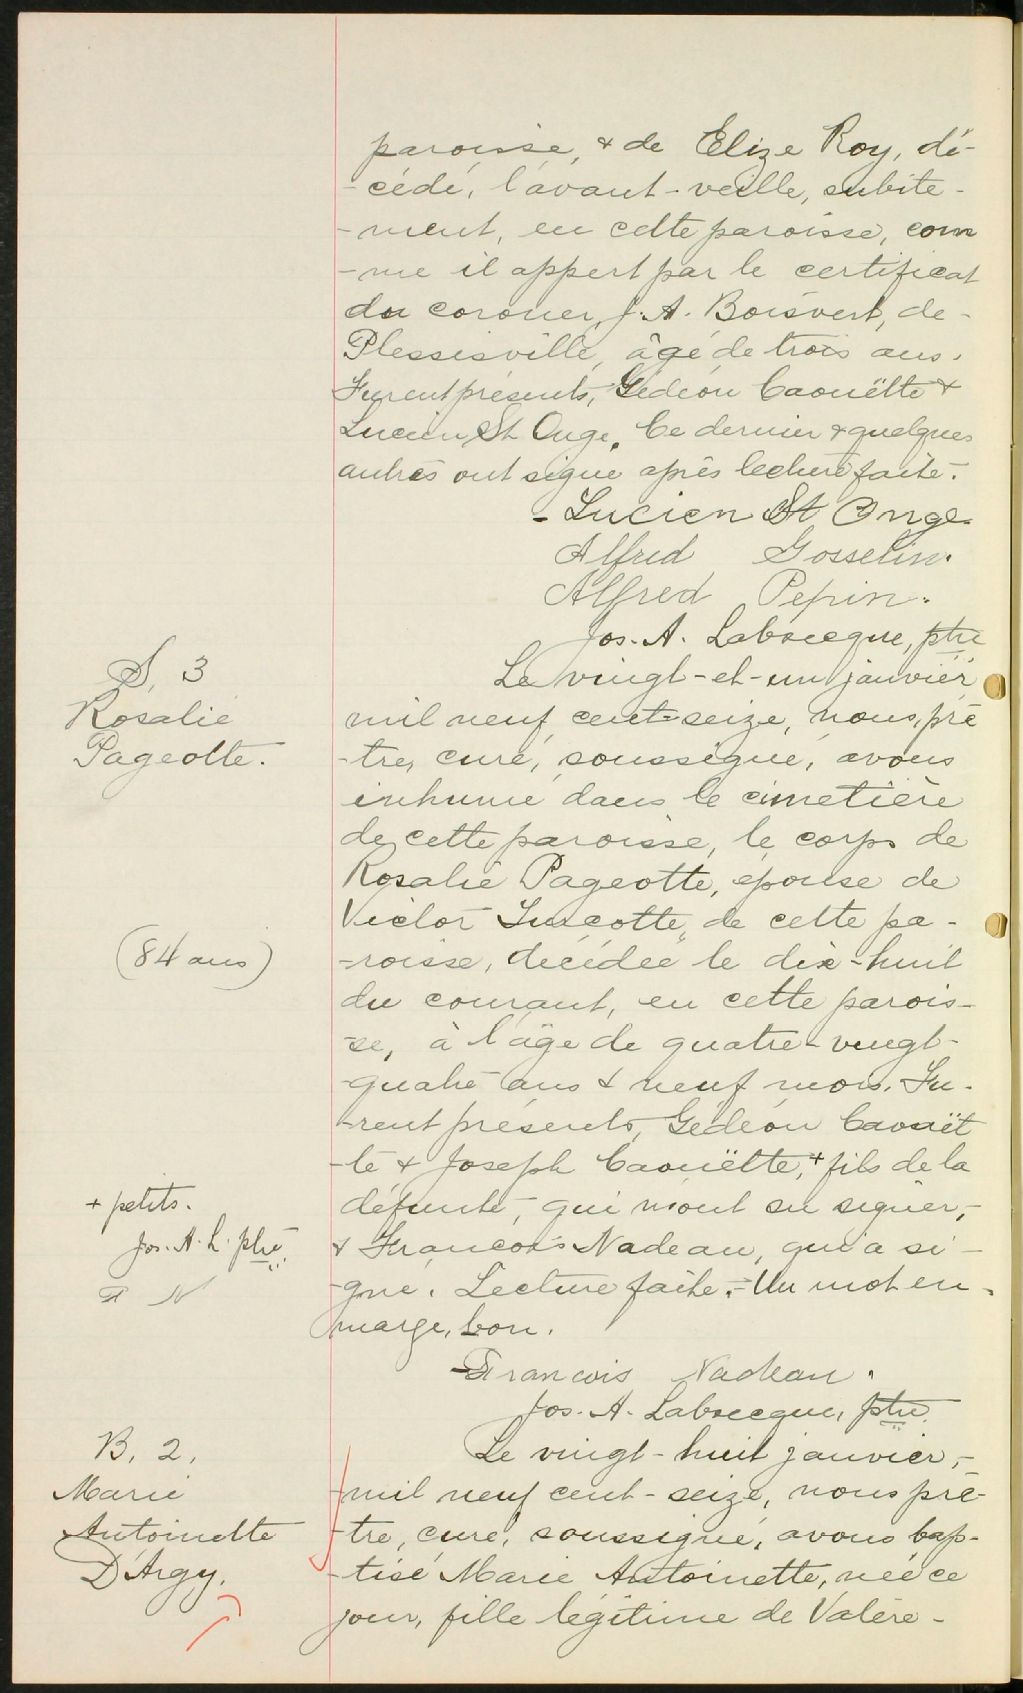 paroisse, & de Elize Roy, dé-
-cédé, l'avant-veille, subite-
-ment, en cette paroisse, com
-me il appert par le certificat
du coroner, J. A. Boisvert, de-
Plessisville, âgé de trois ans.
Furent présents, Gédéon Caouëtte &
Lucien St Onge. Ce dernier & quelques
autres ont signé après lecture faite.-
- Lucien St Onge
Alfred Gosselin.
Alfred Pepin.
Jos. A. Labrecque, ptre
S. 3
Rosalie
Pageotte.
(84 ans)
Le vingt-et-un janvier
mil neuf cent-seize, nous, prê
-tre, curé, soussigné, avons
inhumé dans le cimetière
de cette paroisse, le corps de
Rosalie Pageotte, épouse de
Victor Turcotte, de cette pa-
-roisse, décédée le dix-huit
du courant, en cette parois-
-se, à l'âge de quatre-vingt-
-quatre ans & neuf mois. Fu-
-rent présents, Gédéon Caouët
-te & Joseph Caouëtte, + fils de la
défunte, qui n'ont su signer,
& François Nadeau, qui a si-
-gné. Lecture faite.- Un mot en
marge, bon.
+ petits.
Jos. A. L. ptre
F N
- Francois Nadeau.
Jos. A. Labrecque, ptre
B. 2.
Marie
Antoinette
D'Argy.
Le vingt-huit janvier,-
mil neuf cent-seize, nous prê-
-tre, curé, soussigné, avons bap-
-tisé Marie Antoinette, née ce
jour, fille légitime de Valère-